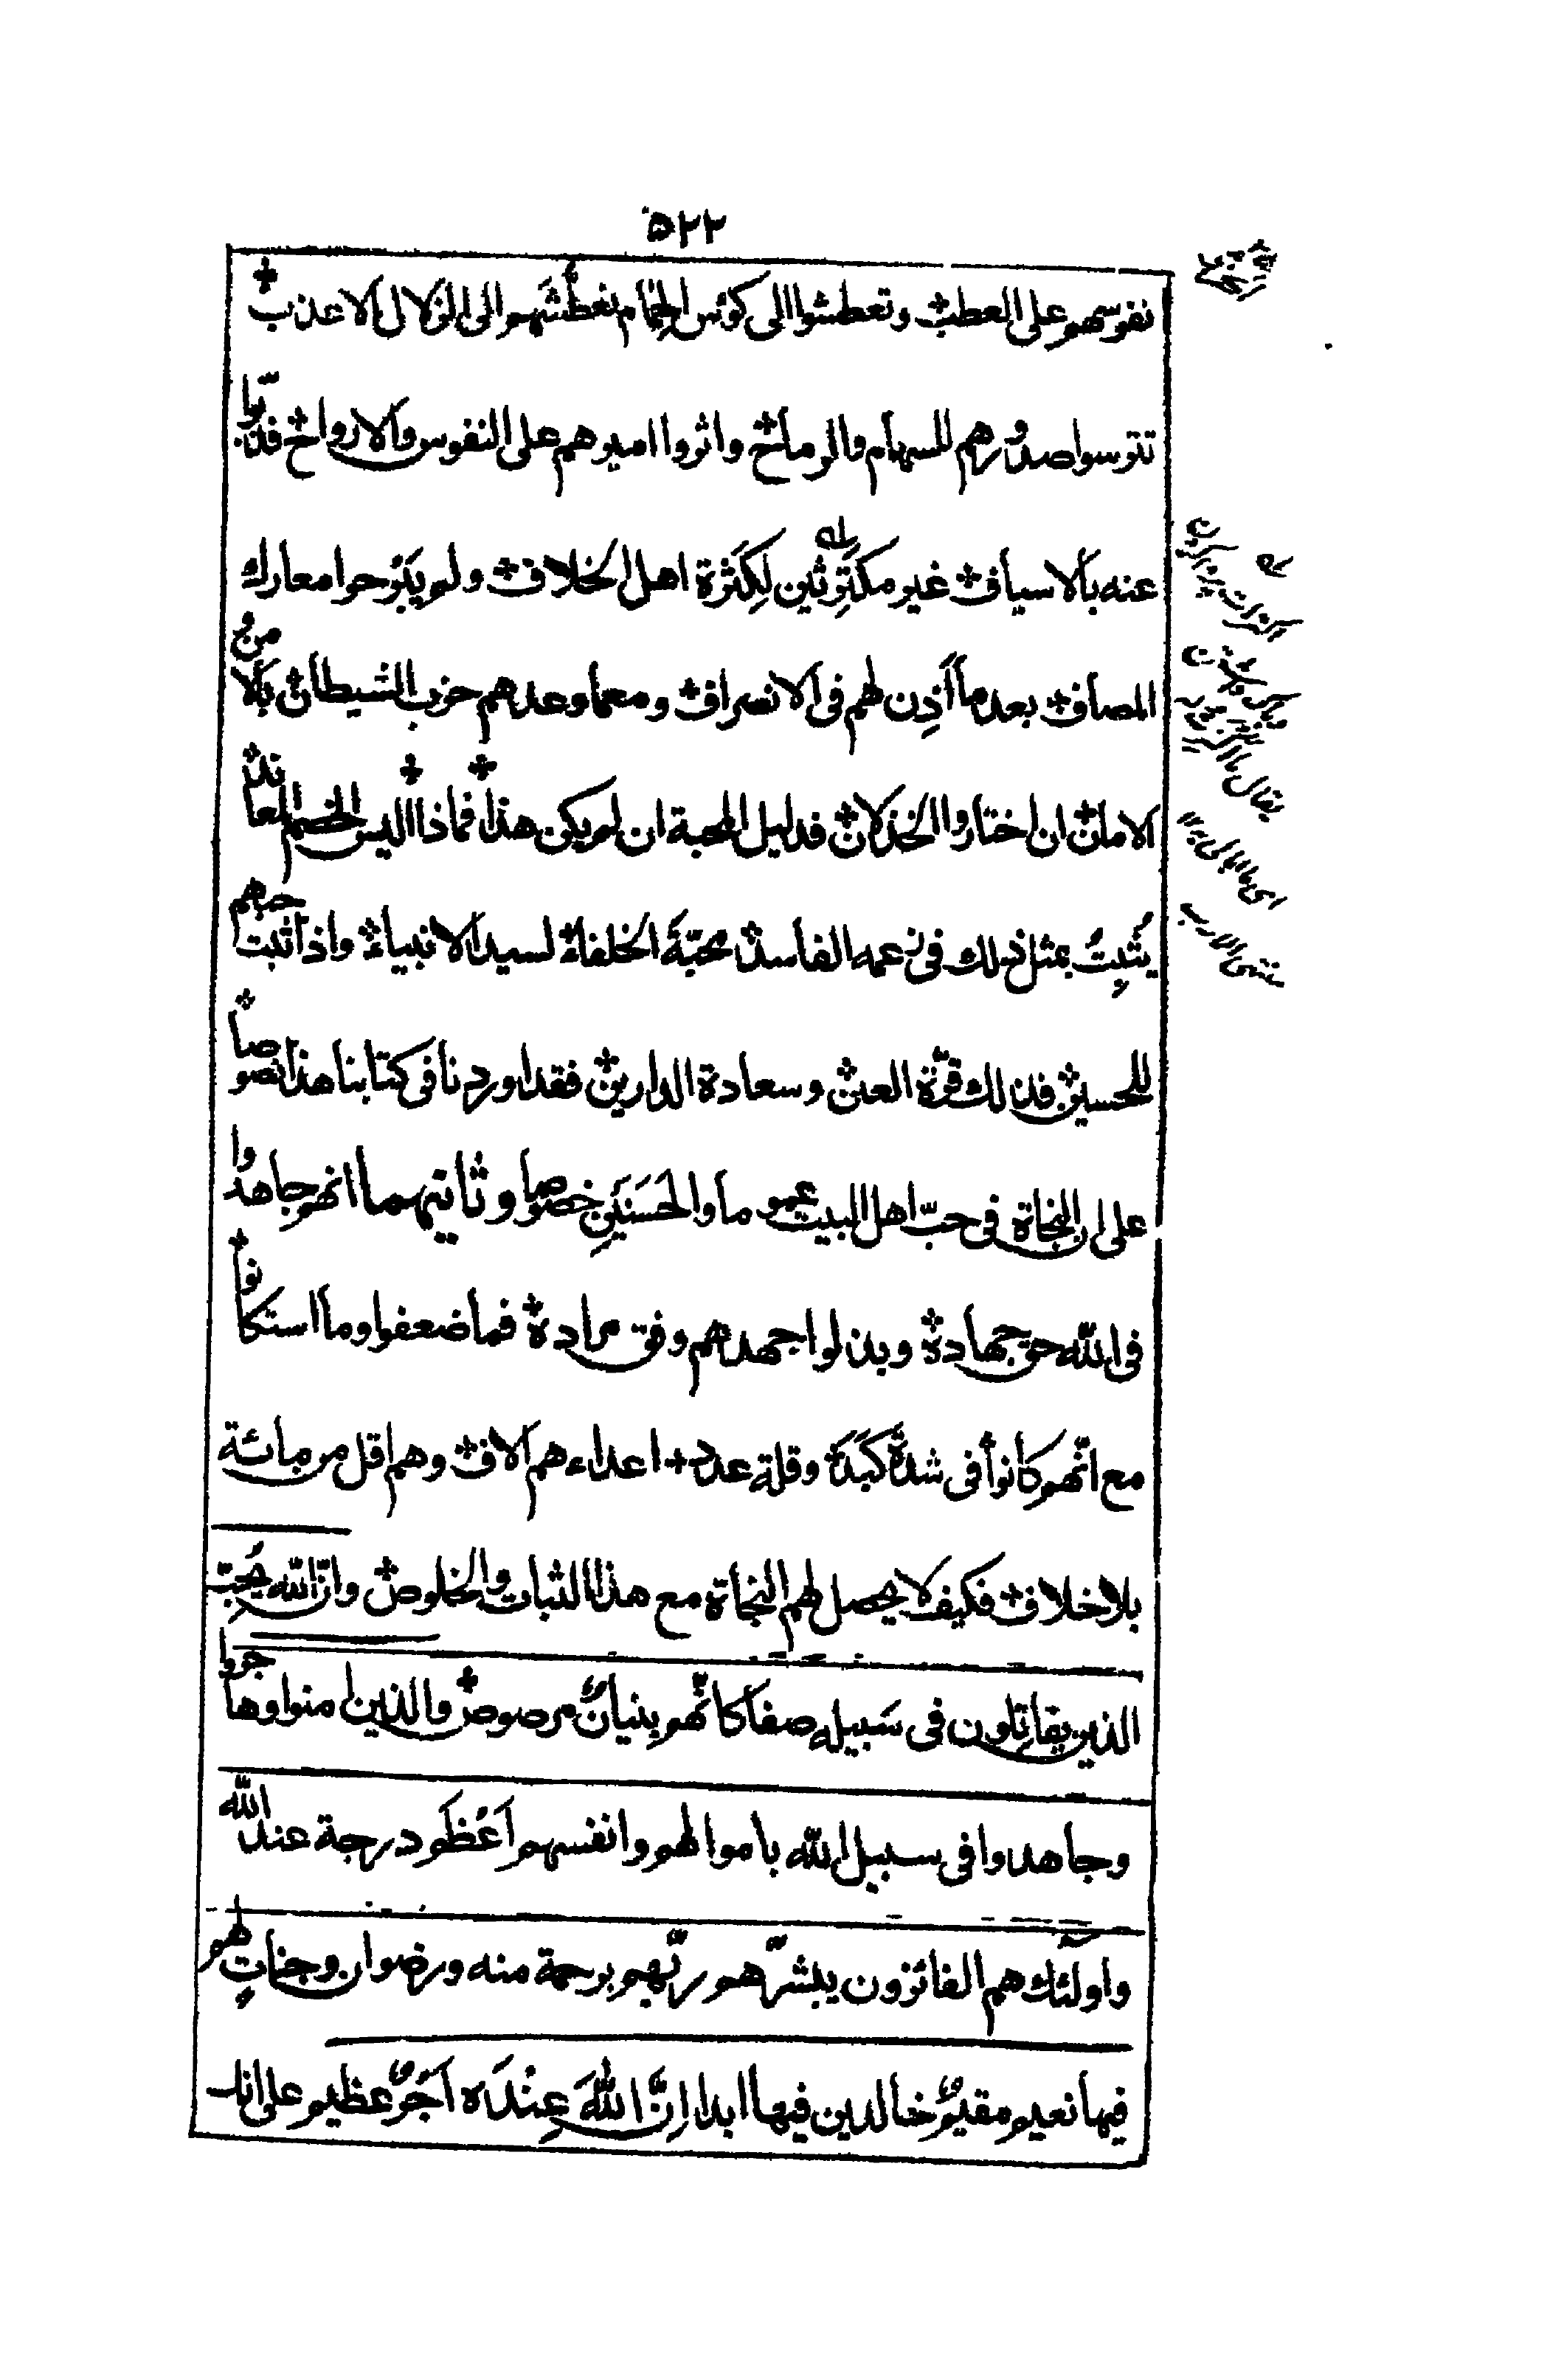 ۵۲۲
نفوسهم على العطب وتعطشوا الى كوئس الحمام تعطّشهم الى الزلال الاعذب
تترسوا صدورهم للسهام والرماح واثروا اميرهم على النفوس والارواح فذبّوا
عنه بالاسياف غير مكترثين لكثرة اهل الخلاف ولم يبرحوا معارك
المصاف بعد ما أذن لهم فى الانصراف ومهما وعدهم حزب الشيطان بالامن و
الامان ان اختاروا الخذلان فدليل المحبة ان لم يكن هذا فماذا اليس الخصم المعاند
يُثبِتُ بمثل ذلك فى زعمه الفاسد محبّة الخلفاء لسيد الانبياء واذا ثبت حبهم
للحسين فذلك قرّة العين وسعادة الدارين فقد اوردنا فى كتابنا هذا نصوصا
على ان النجاة فى حبّ اهل البيت عموما والحَسنَينِ خصوصا وثانيهما انهم جاهدوا
فى الله حق جهاده وبذلوا جهدهم وفق مراده فما ضعفوا وما استكانوا
مع انّهم كانوا فى شدة كبَدَة وقلة عدد اعداءهم الاف وهم اقل من مائة
بلا خلاف فكيف لا يحصل لهم النجاة مع هذا الثبات والخلوص وانّ الله يُحِبّ
الذين يقاتِلون فى سَبيله صفا كانّهم بِنيانٌ مرصوص والذين امنوا وهاجروا
وجاهدوا فى سبيل الله باموالهم وانفسهم اَعْظَم درجة عند الله
واولئك هم الفائزون يبشّرهم ربّهم برحمة منه ورضوان وجنات لهم
فيها نعيم مقيمٌ خالدين فيها ابدا اِنَّ اللهَ عِنْدَه اَجْرٌ عظيم على ان